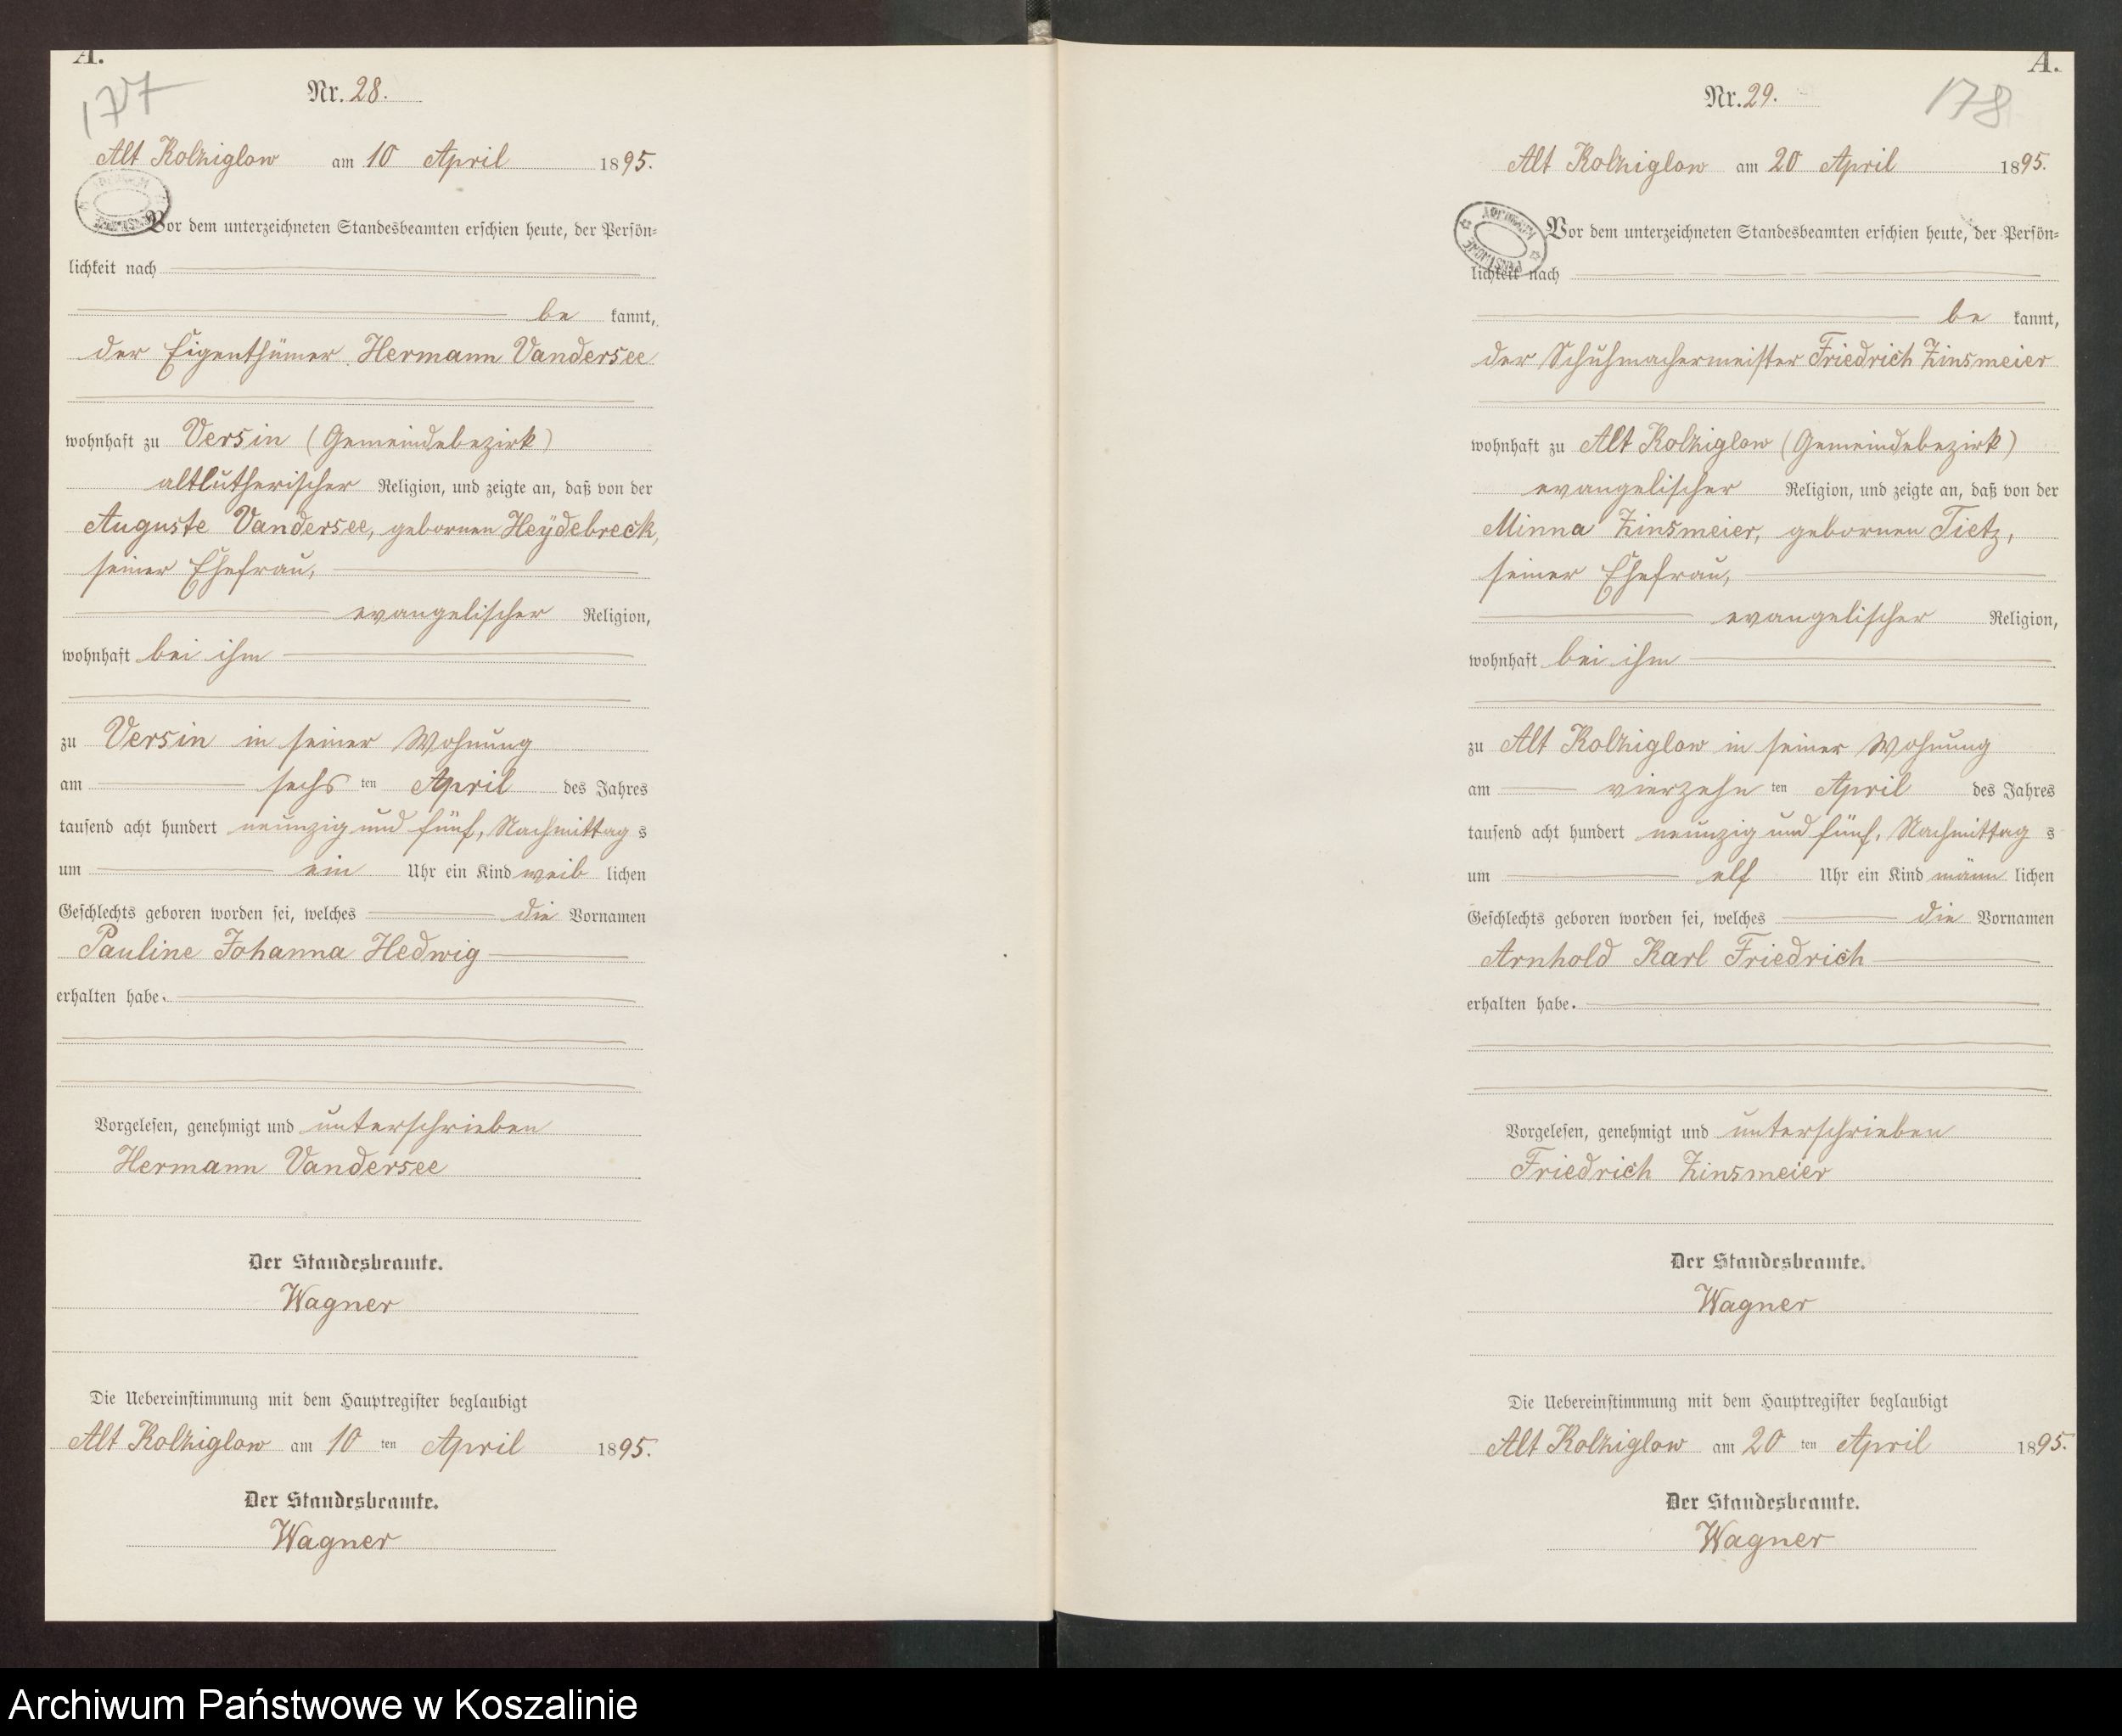 A.
177
Nr. 28.
Alt Kolziglow am 10 April 1895.
Vor dem unterzeichneten Standesbeamten erschien heute, der Persön-
lichkeit nach
be kannt,
der Eigenthümer Hermann Vandersee
wohnhaft zu Versin (Gemeindebezirk)
altlutherischer Religion, und zeigte an, daß von der
Auguste Vandersee, gebornen Heydebreck,
seiner Ehefrau,
evangelischer Religion,
wohnhaft bei ihm
zu Versin in seiner Wohnung
am sechs ten April des Jahres
tausend acht hundert neunzig und fünf, Nachmittag s
um ein Uhr ein Kind weib lichen
Geschlechts geboren worden sei, welches die Vornamen
Pauline Johanna Hedwig
erhalten habe.
Vorgelesen, genehmigt und unterschrieben
Hermann Vandersee
Der Standesbeamte.
Wagner
Die Uebereinstimmung mit dem Hauptregister beglaubigt
Alt Kolziglow am 10 ten April 1895.
Der Standesbeamte.
Wagner
A.
178
Nr. 29.
Alt Kolziglow am 20 April 1895.
Vor dem unterzeichneten Standesbeamten erschien heute, der Persön-
lichkeit nach
be kannt,
der Schuhmachermeister Friedrich Zinsmeier
wohnhaft zu Alt Kolziglow (Gemeindebezirk)
evangelischer Religion, und zeigte an, daß von der
Minna Zinsmeier, gebornen Tietz,
seiner Ehefrau,
evangelischer Religion,
wohnhaft bei ihm
zu Alt Kolziglow in seiner Wohnung
am vierzehn ten April des Jahres
tausend acht hundert neunzig und fünf, Nachmittag s
um elf Uhr ein Kind männ lichen
Geschlechts geboren worden sei, welches die Vornamen
Arnhold Karl Friedrich
erhalten habe.
Vorgelesen, genehmigt und unterschrieben
Friedrich Zinsmeier
Der Standesbeamte.
Wagner
Die Uebereinstimmung mit dem Hauptregister beglaubigt
Alt Kolziglow am 20 ten April 1895.
Der Standesbeamte.
Wagner
Archiwum Państwowe w Koszalinie